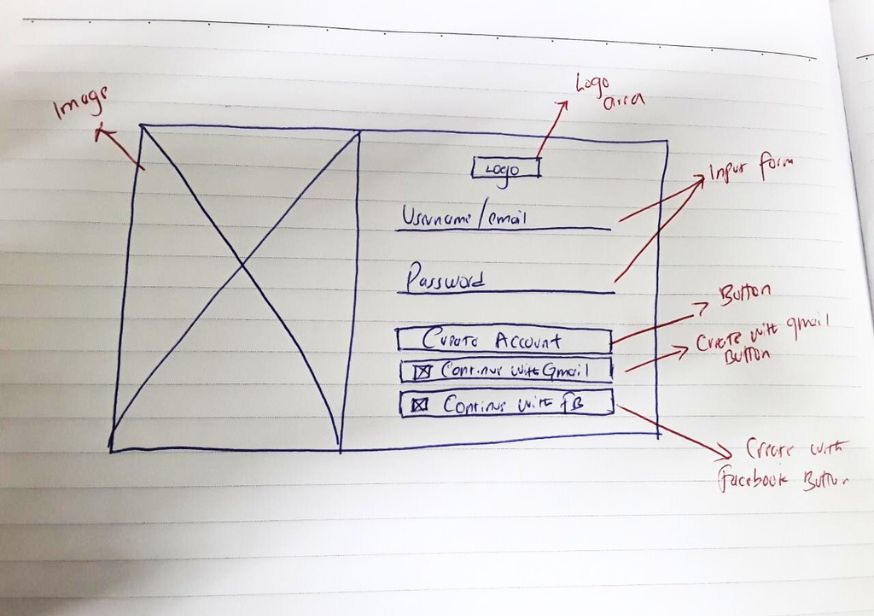 Image
Logo
area
Logo
Input form
Username/email
Password
Button
Create Account
Create with gmail
Button
Continue with Gmail
Continue with FB
Create with
Facebook Button